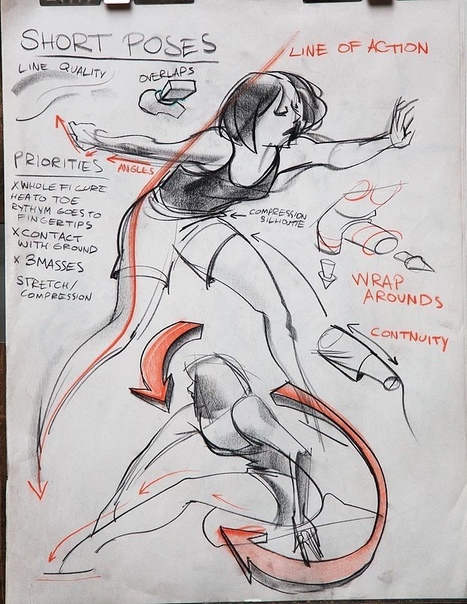 SHORT POSES
LINE OF ACTION
LINE QUALITY
OVERLAPS
ANGLES
PRIORITIES
X WHOLE FIGURE
HEA TO TOE
RYTHYM GOES TO
FINGERTIPS
X CONTACT
WITH GROUND
X 3 MASSES
STRETCH/
COMPRESSION
COMPRESSION
SILHOUTTE
WRAP
AROUNDS
CONTNUITY